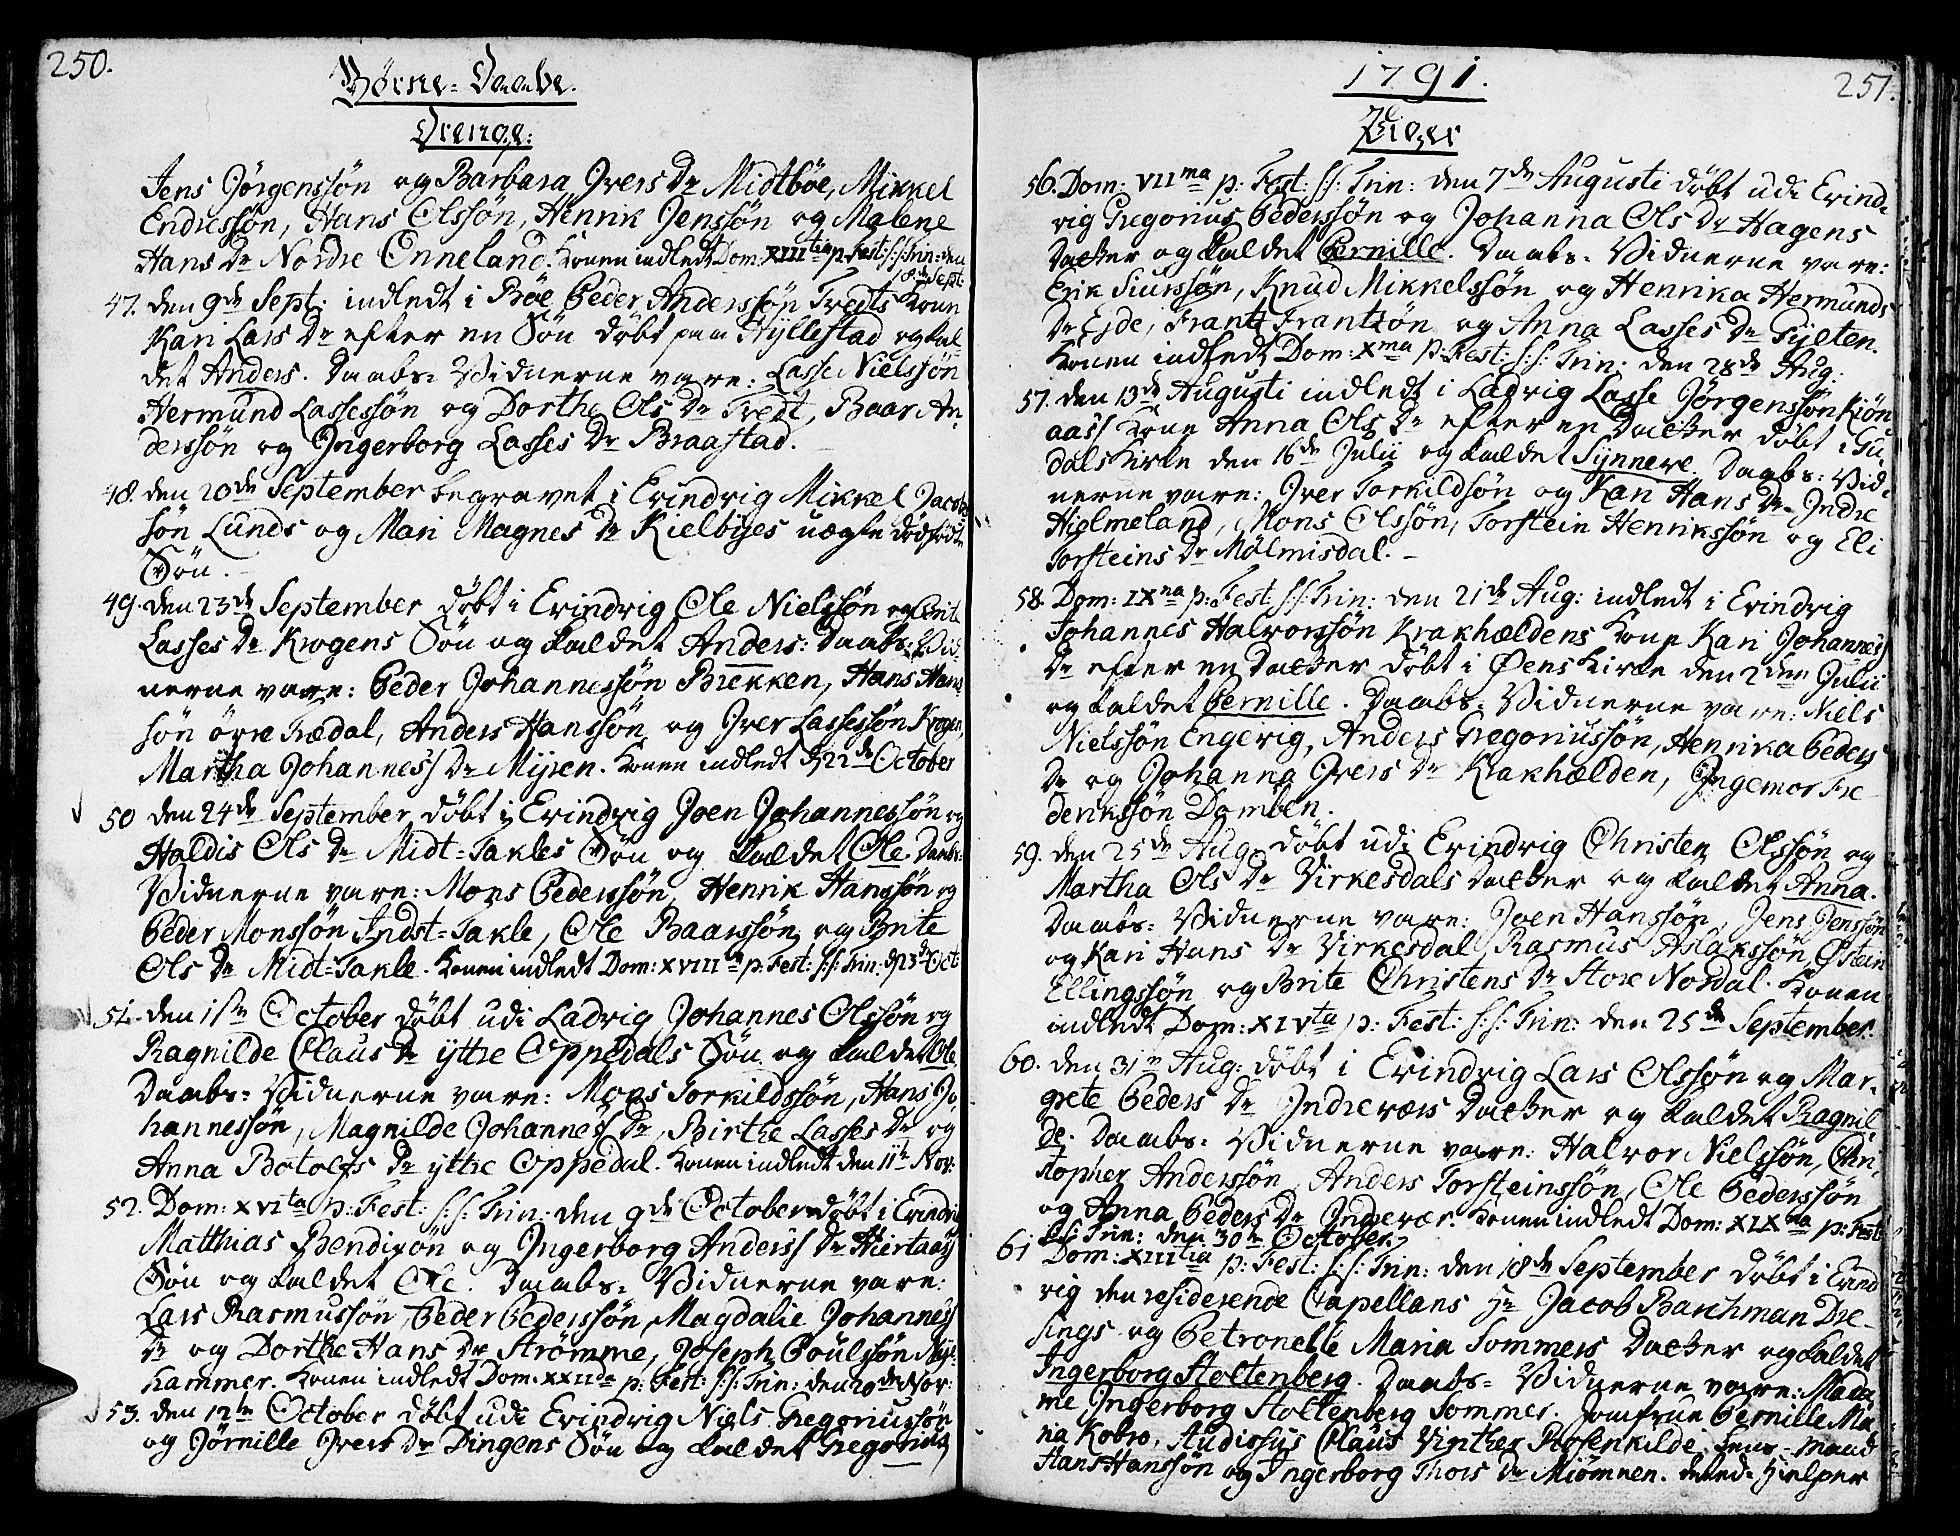 250.
Børne-Daabe.
Drenge:
Jens Jörgenssön og Barbara Jvers Dr Midtböe, Mikkel
Endressön, Hans Olssön, Henrik Jenssön og Malene
Hans Dr Nordre Enneland. Konen indledt Dom: XIIItia p. Fest: s: s: Trin: den
18de Sept:
47. den 9de Sept: indledt i Böe Peder Anderssön Tredts Kone
Kari Lars Dr efter en Sön döbt paa Hyllestad og kal
det Anders. Daabs-Vidnerne vare: Lasse Nielssön
Hermund Lassessön og Dorthe Ols Dr Tredt, Baar An-
derssön og Jngerborg Lasses Dr Braastad.
48. den 20de September begravet i Evindvig Mikkel Jacobs
sön Lunds og Mari Magnes Dr Kielbyes uægte dödfödte
Sön.
49. den 23de September döbt i Evindvig Ole Nielssön og Brite
Lasses Dr Krogens Sön og kaldet Anders: Daabs-Vid-
nerne vare: Peder Johannessön Brekken, Hans Hans
sön övre Trædal, Anders Hanssön og Jver Lassessön Krogen,
Martha Johanness Dr Mijren. Konen indledt d 22de October
50 den 24de September döbt i Evindvig Joen Johannessön og
Haldis Ols Dr Midt-Takles Sön og kaldet Ole. Daabs-
Vidnerne vare: Mons Pederssön, Henrik Hanssön og
Peder Monssön Indst-Takle, Ole Baarssön og Brite
Ols Dr Midt-Takle. Konen indledt Dom: XVIII p: Fest: s: s: Trin: d 23de Oct:
51. den 1ste October döbt udi Ladvig Johannes Olssön og
Ragnilde Claus Dr yttre Oppedals Sön og kaldet Ole
Daabs-Vidnerne vare: Mons Torkildssön, Hans Jo-
hannessön, Magnilde Johannes Dr, Birthe Lasses Dr og
Anna Botolfs Dr yttre Oppedal. Konen indledt den 11te Nov:
52. Dom: XVIta p: Fest: s: s: Trin: den 9de October döbt i Evindvig
Matthias Bendixön og Jngerborg Anderss Dr Hiertaas
Sön og kaldet Ole. Daabs-Vidnerne vare:
Lars Rasmussön, Peder Pederssön, Magdalie Johanness
Dr og Dorthe Hans Dr Strömme, Joseph Poulssön Nye-
hammer. Konen indledt Dom: XXIIda p: Fest: s: s: Trin: den 20de Nov:
53. den 12te October döbt udi Evindvig Niels Gregoriussön
og Jörnille Jvers Dr Dingens Sön og kaldet Gregorius
1791.
251.
Piger
56. Dom: VIIma p: Fest: s: s: Trin: den 7de Augusti döbt udi Evind-
vig Gregorius Pederssön og Johanna Ols Dr Hagens
Datter og kaldet Pernille. Daabs-Vidnerne vare:
Erik Siurssön, Knud Mikkelssön og Henrika Hermunds
Dr Eide, Frantz Frantzön og Anna Lasses Dr Gylten.
Konen indledt Dom: Xma p: Fest: s: s: Trin: den 28de Aug:
57. den 13de Augusti indledt i Ladvig Lasse Jörgenssön Kiön
aass Kone Anna Ols Dr efter en Datter döbt i Gu-
dals Kirke den 16de Julii og kaldet Synneve. Daabs-Vid-
nerne vare: Jver Torkildsön og Kari Hans Dr Jndre
Hielmeland, Mons Olssön, Torstein Henrikssön og Eli
Torsteins Dr Mölmisdal.
58. Dom: IXna p: Fest: s: s: Trin: den 21de Aug: indledt i Evindvig
Johannes Halvorssön Krakhældens Kone Kari Johannes
Dr efter en Datter döbt i Öens Kirke den 2den Julii
og kaldet Pernille. Daabs-Vidnerne vare: Niels
Nielssön Engevig, Anders Gregoriussön, Henrika Peders
Dr og Johanna Jvers Dr Krakhælden, Jngemor Fre-
derikssön Domben.
59. den 25de Aug. döbt udi Evindvig Christen Olssön og
Martha Ols Dr Virkesdals Datter og kaldet Anna.
Daabs-Vidnerne vare: Joen Hanssön, Jens Jenssön
og Kari Hans Dr Virkesdal, Rasmus Aslakssön, Östein
Ellingssön og Brite Christens Dr Store Nordal. Konen
indledt Dom: XIVta p: Fest: s: s: Trin: den 25de September.
60. den 31te Aug: döbt i Evindvig Lars Olssön og Mar-
grete Peders Dr Jndreværs Datter og kaldet Ragnil-
de. Daabs-Vidnerne vare: Halvor Nielssön, Chri-
stopher Anderssön, Anders Torsteinssön, Ole Pederssön
og Anna Peders Dr Jndrevær. Konen indledt Dom: XIXna p: Fest:
s: s: Trin: den 30te October.
61 Dom: XIIItia p: Fest: s: s: Trin: den 18de September döbt i Evind
vig den residerende Capellans Hr Jacob Barchman Dre-
sings og Petronelle Maria Sommers Datter og kaldet
Ingerborg Stoltenberg. Daabs-Vidnerne vare: Mada-
me Jngerborg Stoltenberg Sommer. Jomfrue Pernille Ma-
ria Kobro, Studiosus Claus Vinther Rosenkilde, Lens-mand
Hans Hanssön og Jngerborg Thors Dr Miömnen.